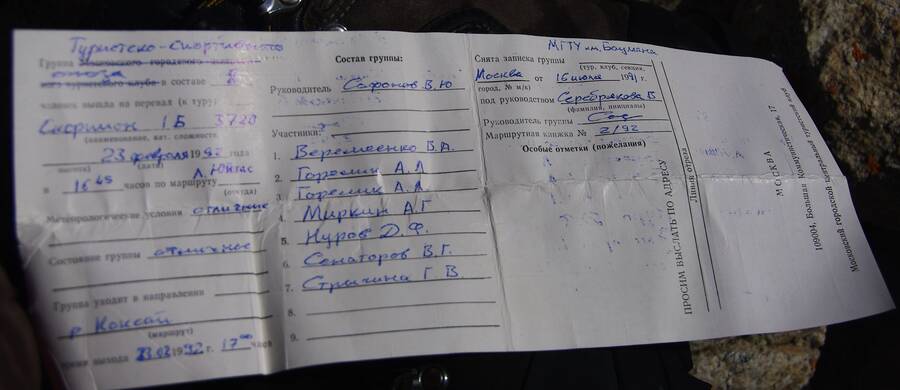 Туристско-спортивного
Группа Московского городского
союза
ского клуба в составе 8
человек вышла на перевал (к туру)
Скорпион 1Б 3720
(наименование, кат. сложности,
23 февраля 1992 года
высота) (дата)
в 16 45 часов по маршруту
(откуда)
Метеорологические условия отличные
Состояние группы отличное
Группа уходит в направлении
р. Коксай
(маршрут)
выхода 23.02 1992 г. 17 00 часов
Состав группы:
Руководитель Сафонов В.Ю
Участники:
1. Веремеенко В.А.
2. Горелик А.Л
3. Горелик А.Л
4. Миркин А.Г
5. Нуров Д.Ф.
6. Сенаторов В.Г.
7. Стрыгина Г.В.
8.
9.
МГТУ им. Баумана
Снята записка группы
(тур. клуб, секция,
Москва от 16 июля 1991 г.
город, № м/к)
под руководством Серебрякова В
(фамилия, инициалы)
Руководитель группы
Маршрутная книжка № 2/92
Особые отметки (пожелания)
ПРОСИМ ВЫСЛАТЬ ПО АДРЕСУ
Линия отреза
МОСКВА
109004, Большая Коммунистическая, 17
Московский городской центральный туристский клуб